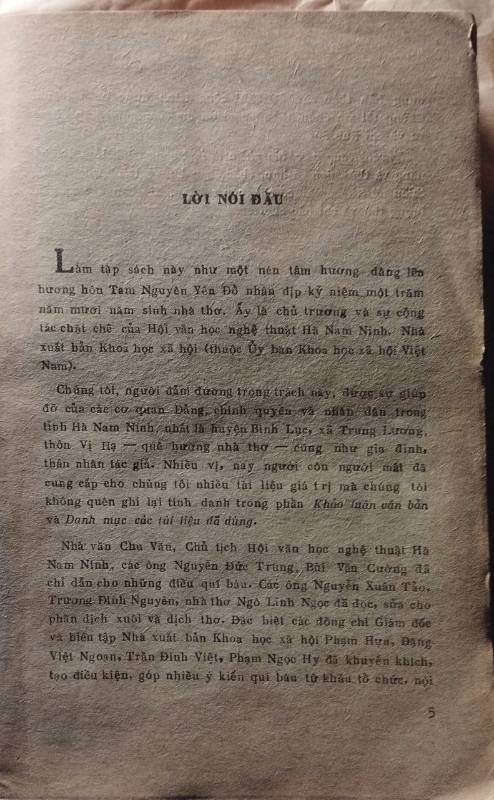 LỜI NÓI ĐẦU
Làm tập sách này như một nén tâm hương dâng lên
hương hồn Tam Nguyên Yên Đổ nhân dịp kỷ niệm một trăm
năm mươi năm sinh nhà thơ. Ấy là chủ trương và sự cộng
tác chặt chẽ của Hội văn học nghệ thuật Hà Nam Ninh. Nhà
xuất bản Khoa học xã hội (thuộc Ủy ban Khoa học xã hội Việt
Nam).
Chúng tôi, người đảm đương trọng trách này, được sự giúp
đỡ của các cơ quan Đảng, chính quyền và nhân dân trong
tỉnh Hà Nam Ninh, nhất là huyện Bình Lục, xã Trung Lương,
thôn Vị Hạ — quê hương nhà thơ — cũng như gia đình,
thân nhân tác giả. Nhiều vị, nay người còn người mất đã
cung cấp cho chúng tôi nhiều tài liệu giá trị mà chúng tôi
không quên ghi lại tính danh trong phần Khảo luận văn bản
và Danh mục các tài liệu đã dùng.
Nhà văn Chu Văn, Chủ tịch Hội văn học nghệ thuật Hà
Nam Ninh, các ông Nguyễn Đức Trung, Bùi Văn Cường đã
chỉ dẫn cho những điều quí báu. Các ông Nguyễn Xuân Tảo,
Trương Đình Nguyên, nhà thơ Ngô Linh Ngọc đã đọc, sửa cho
phần dịch xuôi và dịch thơ. Đặc biệt các đồng chí Giám đốc
và biên tập Nhà xuất bản Khoa học xã hội Phạm Hựu, Đặng
Việt Ngoạn, Trần Đình Việt, Phạm Ngọc Hy đã khuyến khích,
tạo điều kiện, góp nhiều ý kiến quí báu từ khâu tổ chức, nội
5